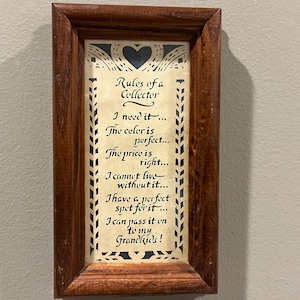 Rules of a
Collector
I need it...
The color is
perfect...
The price is
right...
I cannot live
without it...
I have a perfect
spot for it...
I can pass it on
to my
Grandkids!